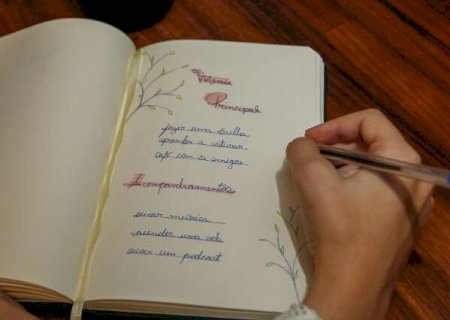 Menu
Principal
fazer uma trilha
aprender a costurar
café com os amigos
Acompanhamentos
ouvir música
acender uma vela
ouvir um podcast